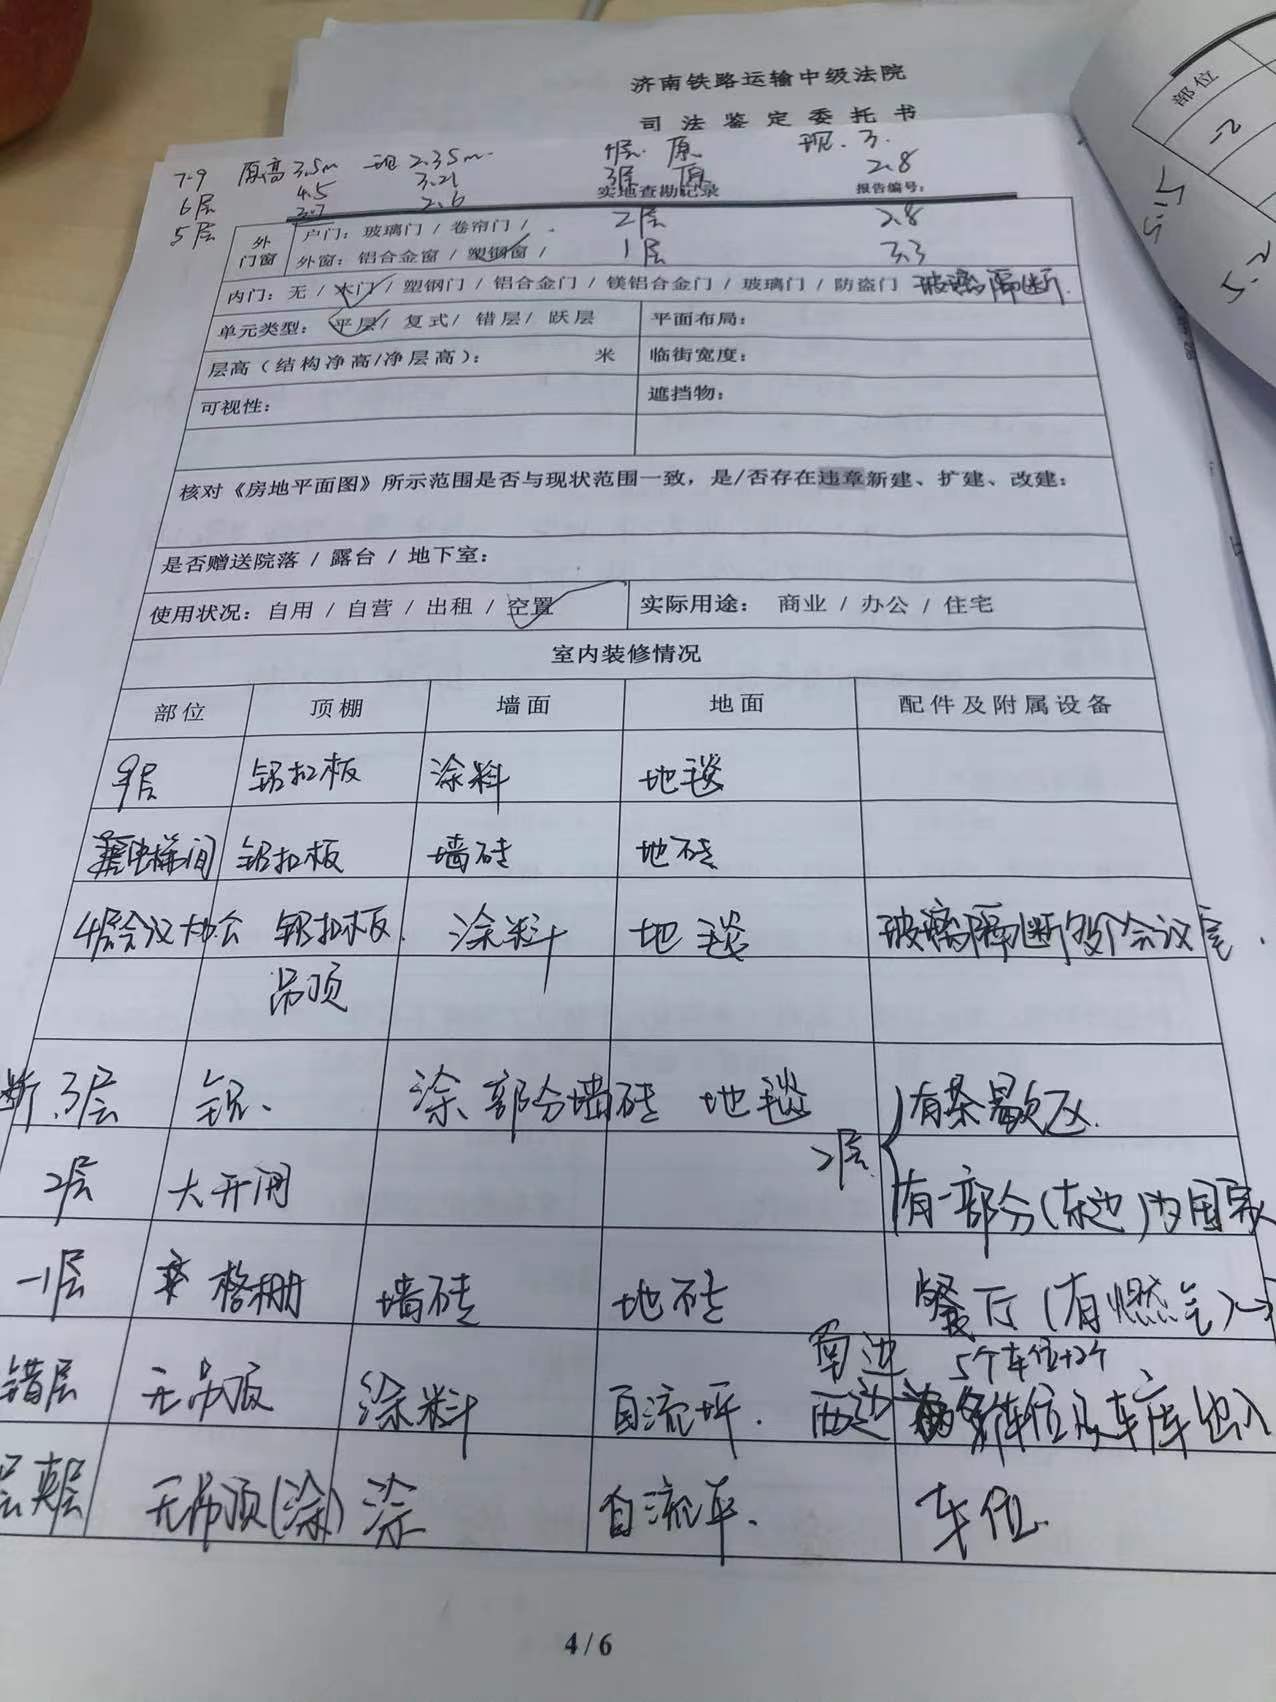 济南铁路运输中级法院
司法鉴定委托书
7-9 原高3.5m 现2.35m 4层 原 现.3.
6层 4.5 3.21 3层 原 2.8
5层 3.7 2.6 实地查勘记录 报告编号:
2层 2.8
1层 3.3
外门窗 户门:玻璃门 / 卷帘门 /
外窗:铝合金窗 / 塑钢窗 /
内门:无 / 木门 / 塑钢门 / 铝合金门 / 镁铝合金门 / 玻璃门 / 防盗门 玻璃隔断.
单元类型: 平层/ 复式/ 错层/ 跃层 平面布局:
层高(结构净高/净层高): 米 临街宽度:
可视性: 遮挡物:
核对《房地平面图》所示范围是否与现状范围一致,是/否存在违章新建、扩建、改建:
是否赠送院落 / 露台 / 地下室:
使用状况:自用 / 自营 / 出租 / 空置 实际用途: 商业 / 办公 / 住宅
室内装修情况
部位 顶棚 墙面 地面 配件及附属设备
9层 铝扣板 涂料 地毯
电梯间 铝扣板 墙砖 地砖
4层会议办公 铝扣板. 涂料 地毯 玻璃隔断多个会议室.
吊顶
断.3层 铝、 涂、部分墙砖 地毯 有茶歇区.
2层 大开间 2层 有一部分(东边)为国家
-1层 格栅 墙砖 地砖 餐厅(有燃气)
南边 5个车位+2个
错层 无吊顶 涂料 自流坪. 西边 车位及车库出入
层夹层 无吊顶(涂) 涂 自流平. 车位.
4 / 6
部位
-2
5.15
5.2